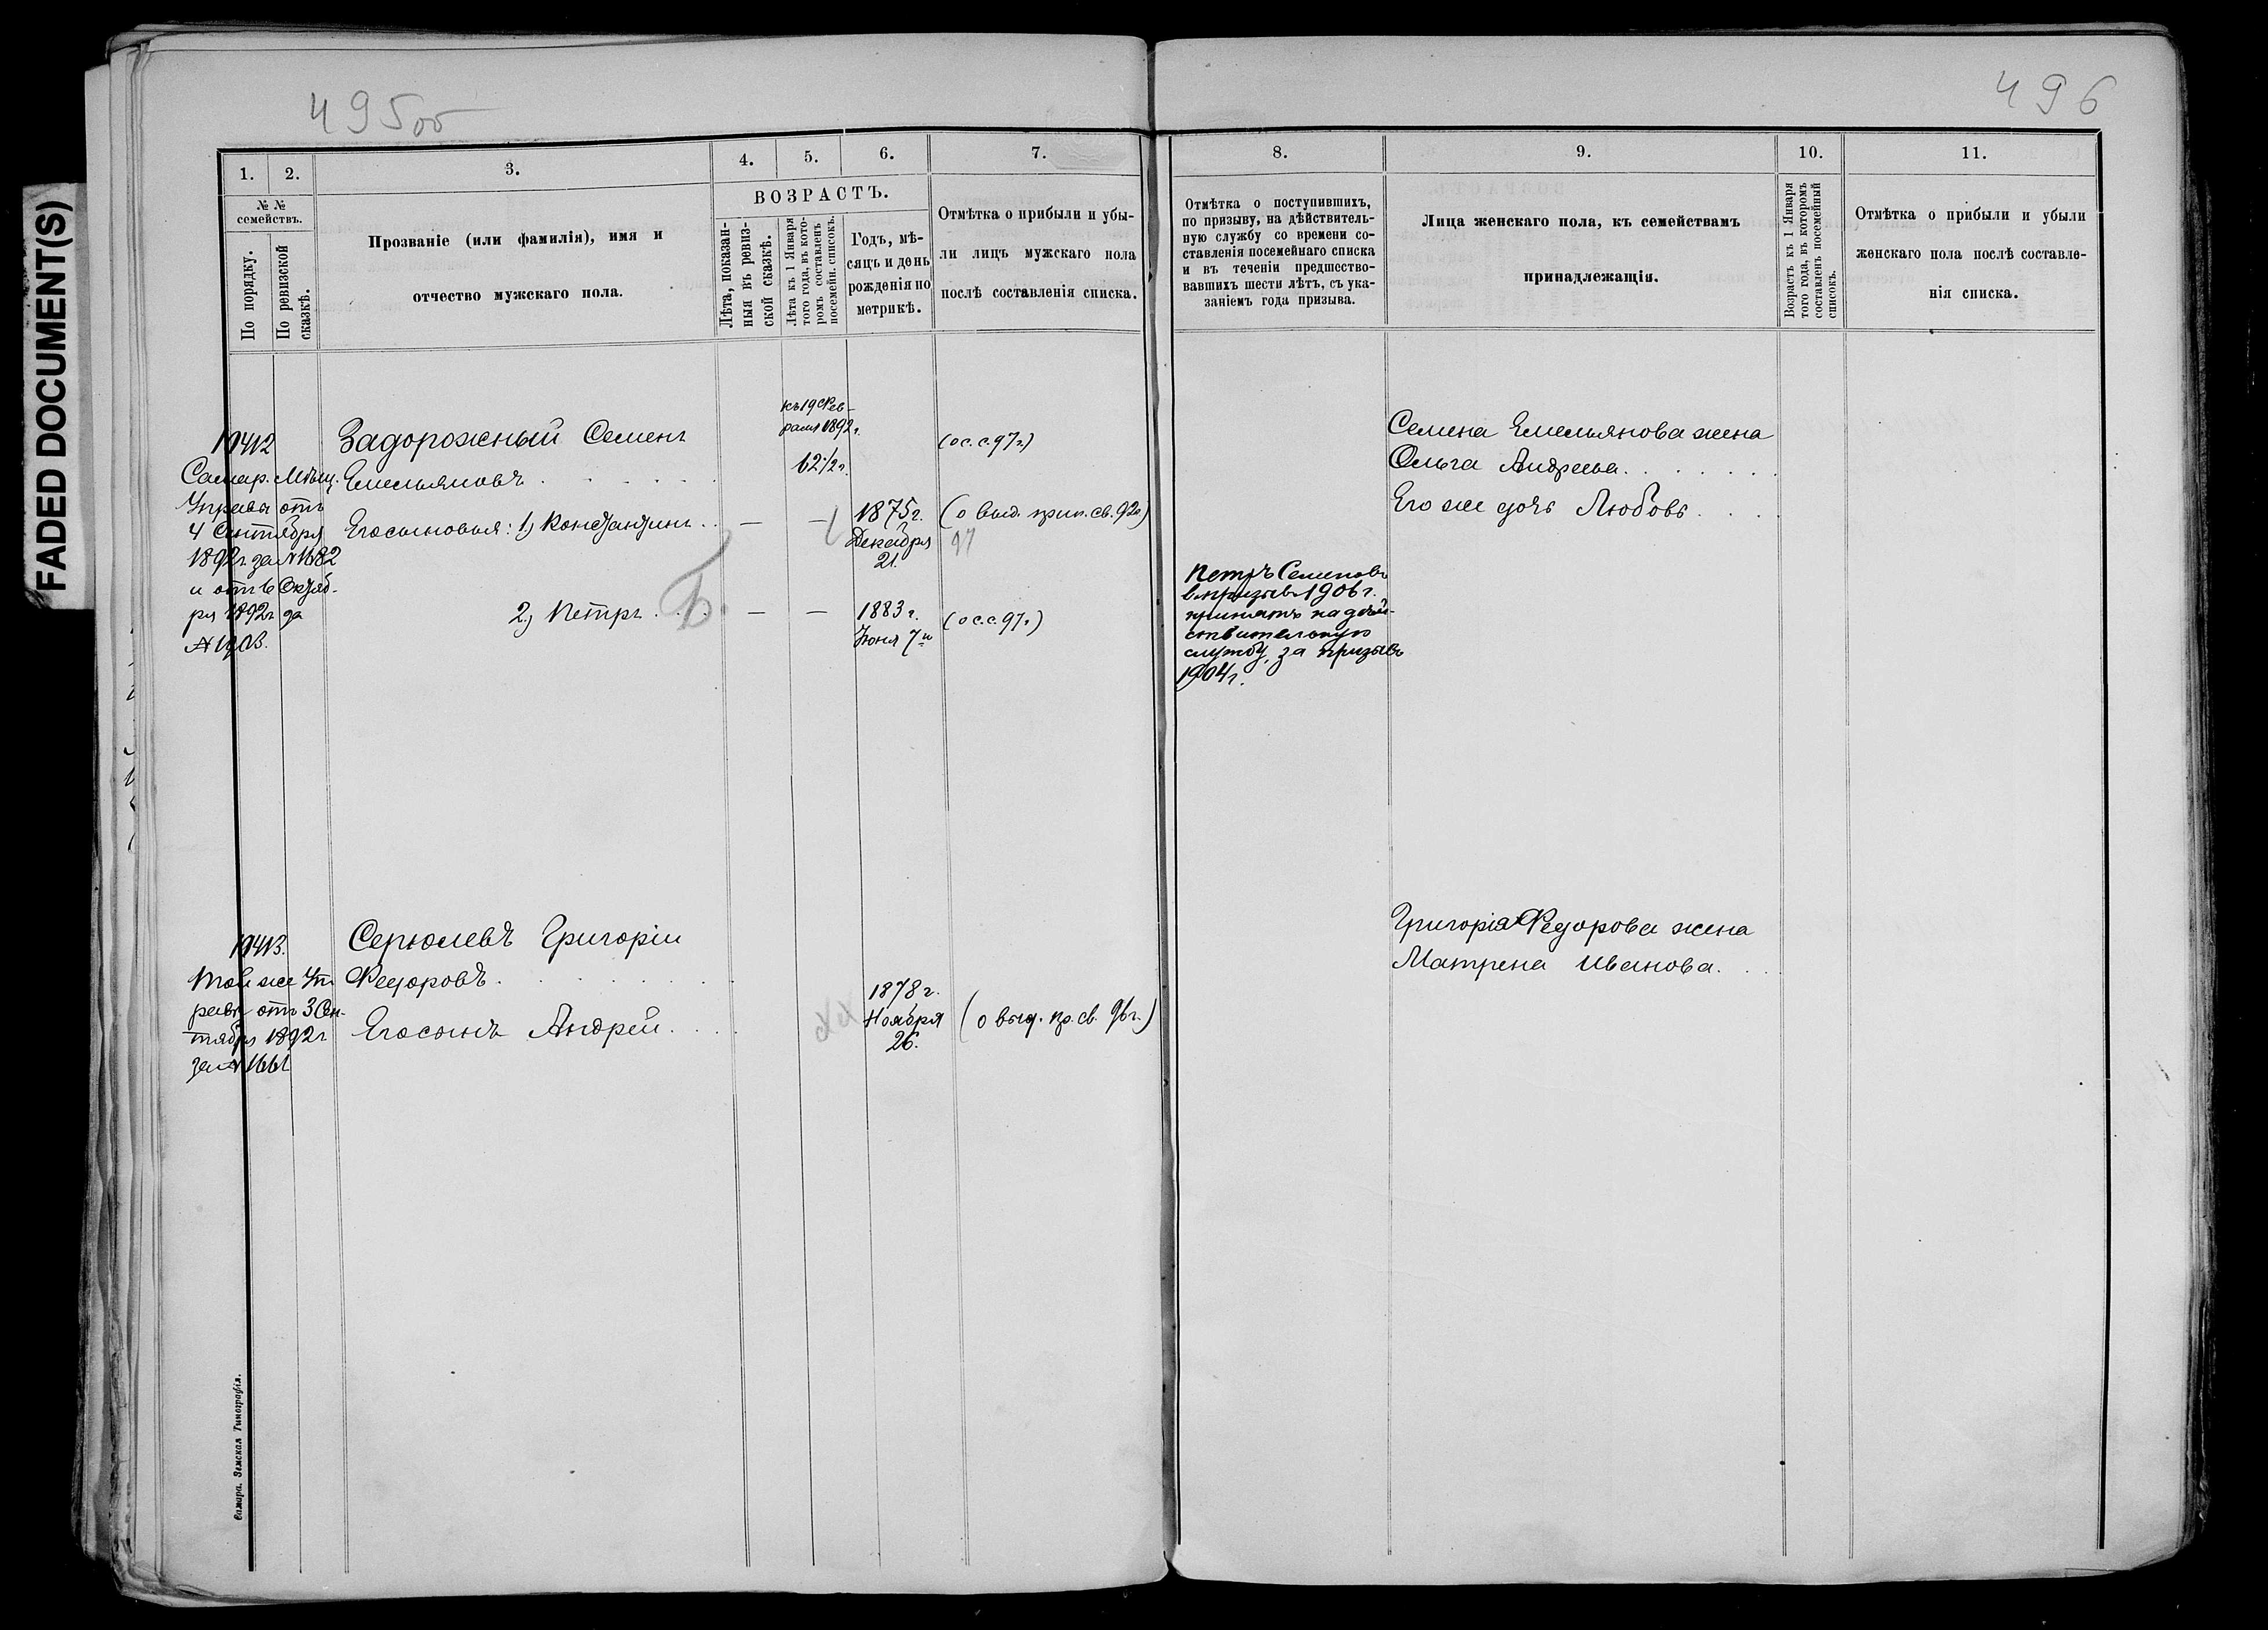 FADED DOCUMENT(S)
495об
496
1.
2.
3.
4.
5.
6.
7.
8.
9.
10.
11.
№ №
семействъ.
По порядку.
По ревизской
сказкѣ.
Прозваніе (или фамилія), имя и
отчество мужскаго пола.
ВОЗРАСТЪ.
Лѣта, показан-
ныя въ ревиз-
ской сказкѣ.
Лѣта къ 1 Января
того года, въ кото-
ромъ составленъ
посемейн. списокъ.
Годъ, мѣ-
сяцъ и день
рожденія по
метрикѣ.
Отмѣтка о прибыли и убы-
ли лицъ мужскаго пола
послѣ составленія списка.
Отмѣтка о поступившихъ,
по призыву, на дѣйствитель-
ную службу со времени со-
ставленія посемейнаго списка
и въ теченіи предшество-
вавшихъ шести лѣтъ, съ ука-
заніемъ года призыва.
Лица женскаго пола, къ семействамъ
принадлежащія.
Возрастъ къ 1 Января
того года, въ которомъ
составленъ посемейный
списокъ.
Отмѣтка о прибыли и убыли
женскаго пола послѣ составле-
нія списка.
Самар. Мѣщ.
Управы отъ
4 Сентября
1892г. за № 1682
и отъ 6 Октяб-
ря 1892г за
Задорожный Семенъ
Емельяновъ
Его сыновья: 1) Константинъ
2) Петръ
Б.
къ 19 Фев-
раля 1892г.
1875г.
Декабря
21.
1883г.
Іюня 7
(ос.с.97г)
(о выд. прип. св. 92г)
97
(ос.с.97г)
Петръ Семеновъ
въ призывъ 1906г.
принятъ на дѣй-
ствительную
службу, за призывъ
1904г.
Семена Емельянова жена
Ольга Андреева
Его же дочь Любовь
Той же Уп-
равы отъ 3 Сен-
тября 1892г
за № 1661
Григорій
Федоровъ
Его сынъ Андрей
1878г.
Ноября
26.
(о выд. пр. св. 96г.)
Григорія Федорова жена
Матрена Иванова.
Самара. Земская Типографія.